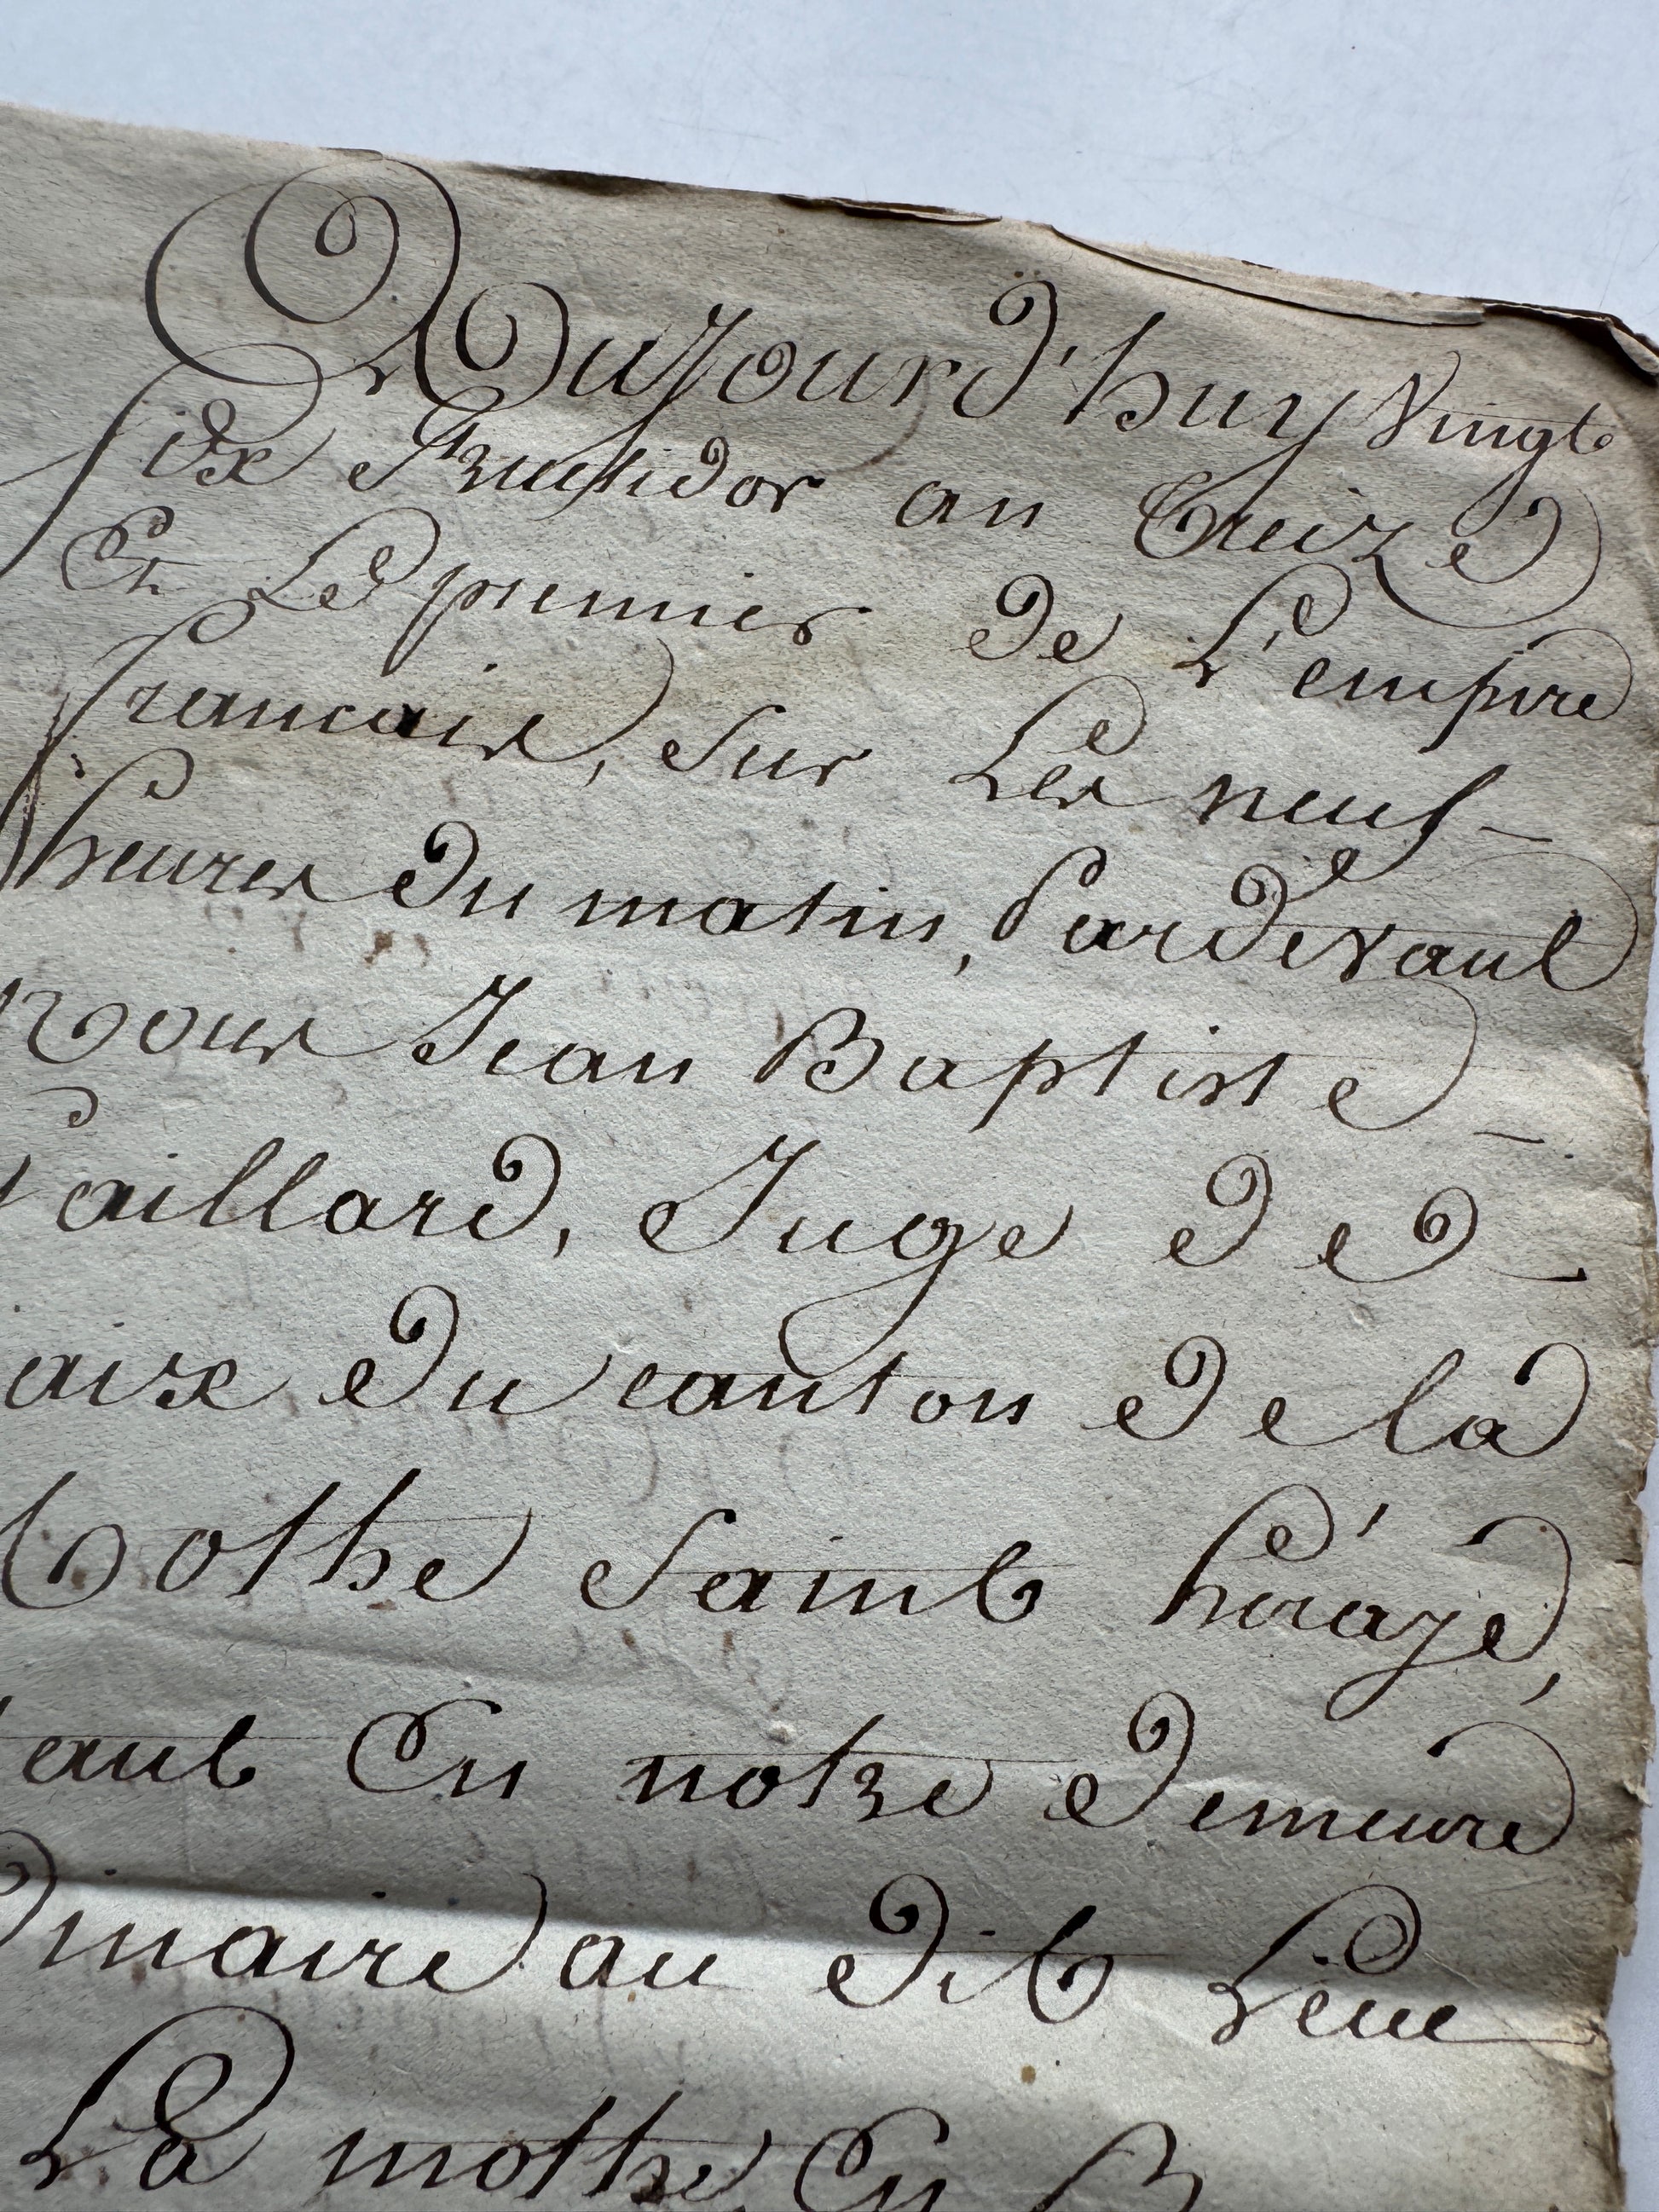 Aujourd'huy Vingt
six Fructidor an treize
Et Le premier de L'empire
francais, sur Les neuf
heures du matin, Pardevant
Nous Jean Baptiste
aillard, Juge de
aix du canton de la
Mothe Saint héraye,
tant En notre demeure
dinaire au dit Lieu
La mothe, En